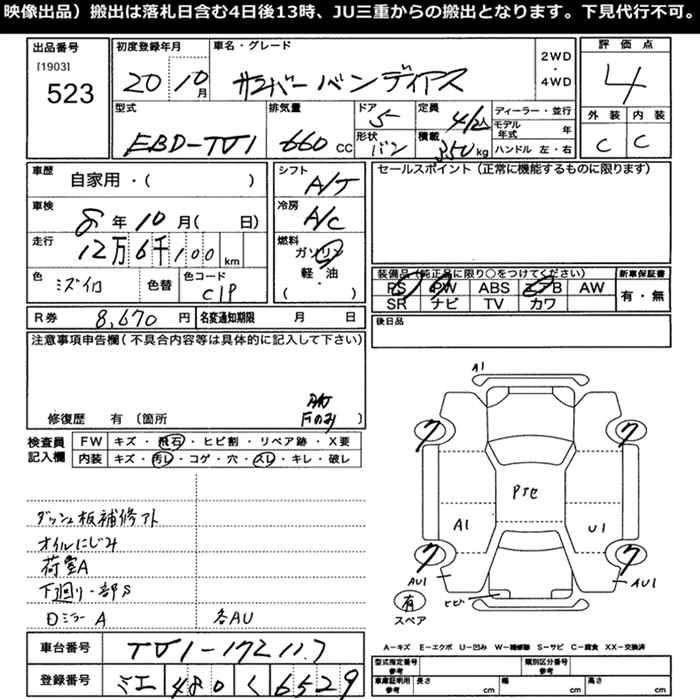 映像出品）搬出は落札日含む4日後13時、JU三重からの搬出となります。下見代行不可。
出品番号 初度登録年月 車名・グレード 2WD・4WD 評価点
[1903]
523 20 10月 サンバーバンディアス 4
型式 排気量 ドア 定員 ディーラー・並行 外装 内装
EBD-TV1 660 CC 5 4/2人 モデル年式 年 C C
形状 バン 積載 350kg ハンドル 左・右
車歴 自家用・( ) シフト A/T セールスポイント（正常に機能するものに限ります）
車検 8年10月( 日) 冷房 A/C
走行 12万6千100km 燃料 ガソリン
軽・油
( )
色 ミズイロ 色替 色コード C1P
装備品（純正品に限り○をつけてください） 新車保証書
PS PW ABS エアB AW 有・無
SR ナビ TV カワ
R券 8,670円 名変通知期限 月 日 後日品
注意事項申告欄（不具合内容等は具体的に記入して下さい）
修復歴 有（箇所 )
Fのみ
検査員記入欄 FW キズ・飛石・ヒビ割・リペア跡・X要
内装 キズ・汚レ・コゲ・穴・スレ・キレ・破レ
ダッシュ板補修アト
オイルにじみ
荷室A
下廻り一部S
DミラーA 各AU
A1
7 7
Pте
A1 U1
7 7
AU1 AU1
ヒビ
有
スペア
A－キズ E－エクボ U－凹み W－補修跡 S－サビ C－腐食 XX－交換済
車台番号 TV1-172117
型式指定番号 参考 類別区分番号 参考
登録番号 ミエ 480 く 6529
車庫証明用 参考 長さ cm 幅 cm 高さ cm